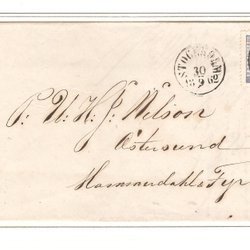 STOCKHOLM
30
9
1862
P. U. H. J. Nelson
Östersund
Hammerdahl & Fyr